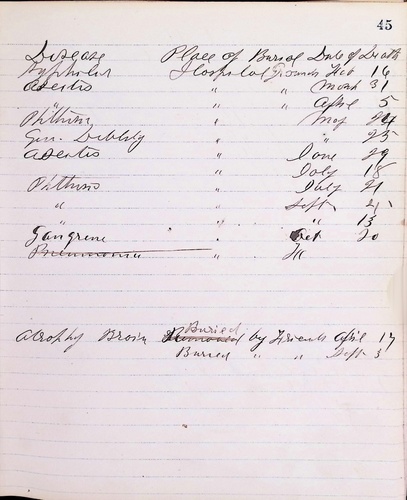 45
Disease Place of Burial Date of Death
Hospital Grounds Feb 16
" March 31
" " " April 5
Phthisis " May 24
Gen. Debility " " 25
" June 29
" July 18
Phthisis " July 21
" " Sept 2
" " " 13
Gangrene " Oct 20
Pneumonia "
Buried
Atrophy Brain Removed by Friends April 17
Buried " " Sept 3